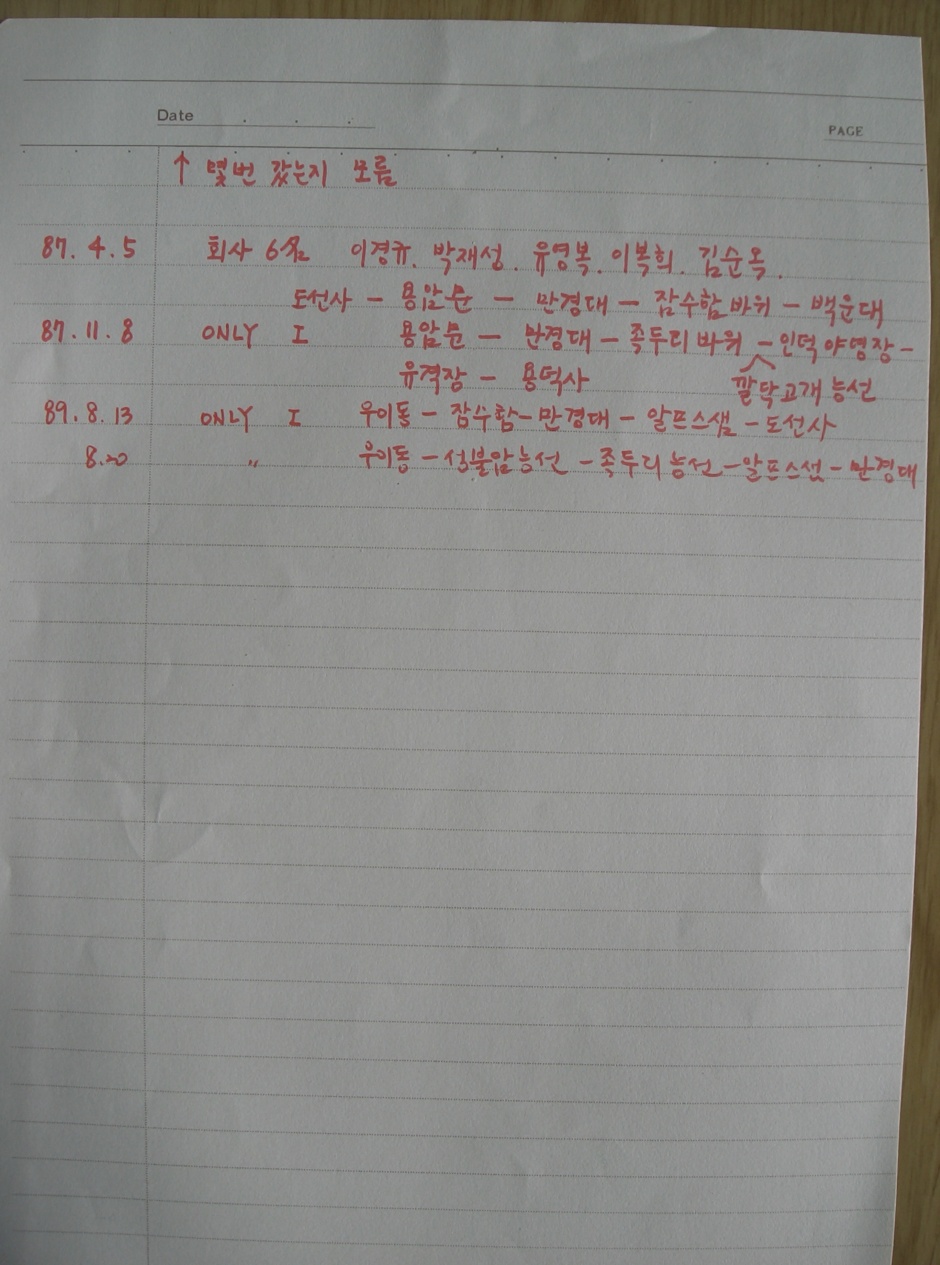 Date . . .
PAGE
↑ 몇번 갔는지 모름
87. 4. 5 회사 6名 이경규. 박재성. 유영복. 이복희. 김순옥.
도선사 - 용암문 - 만경대 - 잠수함 바위 - 백운대
87. 11. 8 ONLY I 용암문 - 만경대 - 족두리 바위 - 인덕 야영장 -
유격장 - 용덕사 깔닥고개 능선
89. 8. 13 ONLY I 우이동 - 잠수함 - 만경대 - 알프스샘 - 도선사
8. 20 〃 우이동 - 성불암능선 - 족두리 능선 - 알프스샘 - 만경대